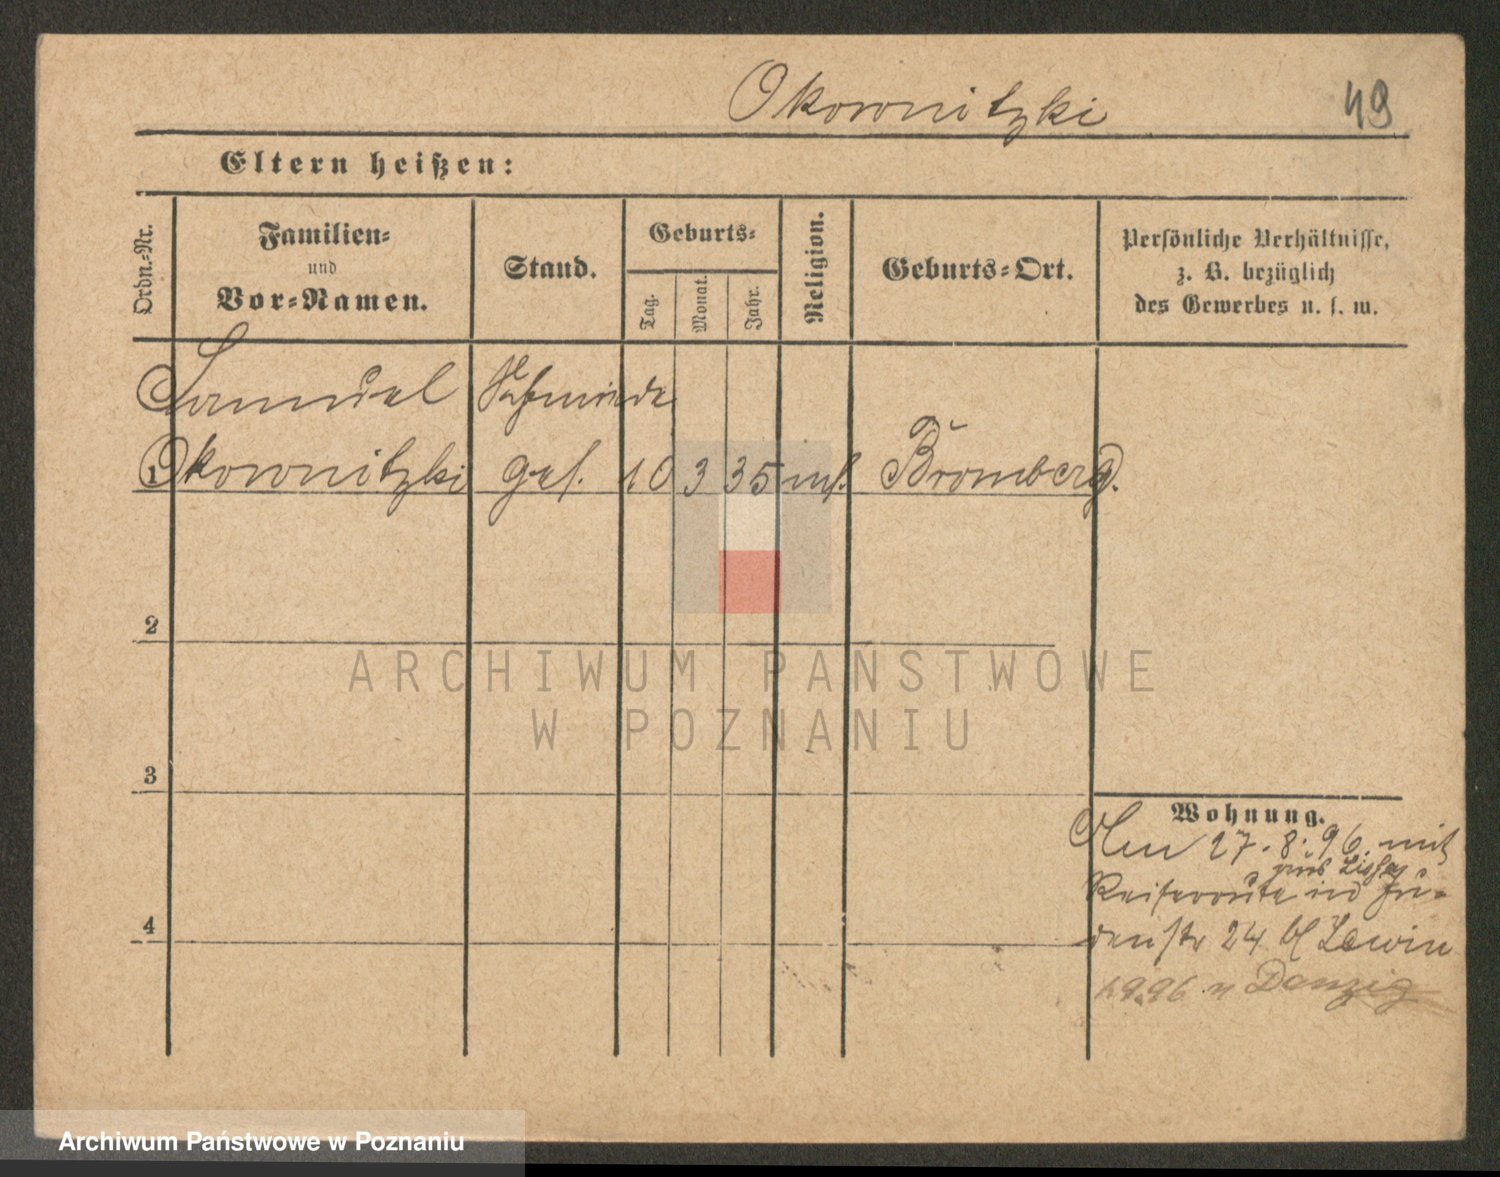 Okownitzki 49
Eltern heißen:
Ordn.-Nr.
Familien-
und
Vor-Namen.
Stand.
Geburts-
Tag.
Monat.
Jahr.
Religion.
Geburts-Ort.
Persönliche Verhältnisse,
z. B. bezüglich
des Gewerbes u. s. w.
Samuel Schmiede
1 Okownitzki ges. 10 3 35 mos. Bromberg.
2
3
4
Wohnung.
Am 27. 8. 96. mit
aus
Reiseroute in Ju-
denstr 24 bei Lewin
1.9.96 n Danzig
ARCHIWUM PAŃSTWOWE
W POZNANIU
Archiwum Państwowe w Poznaniu